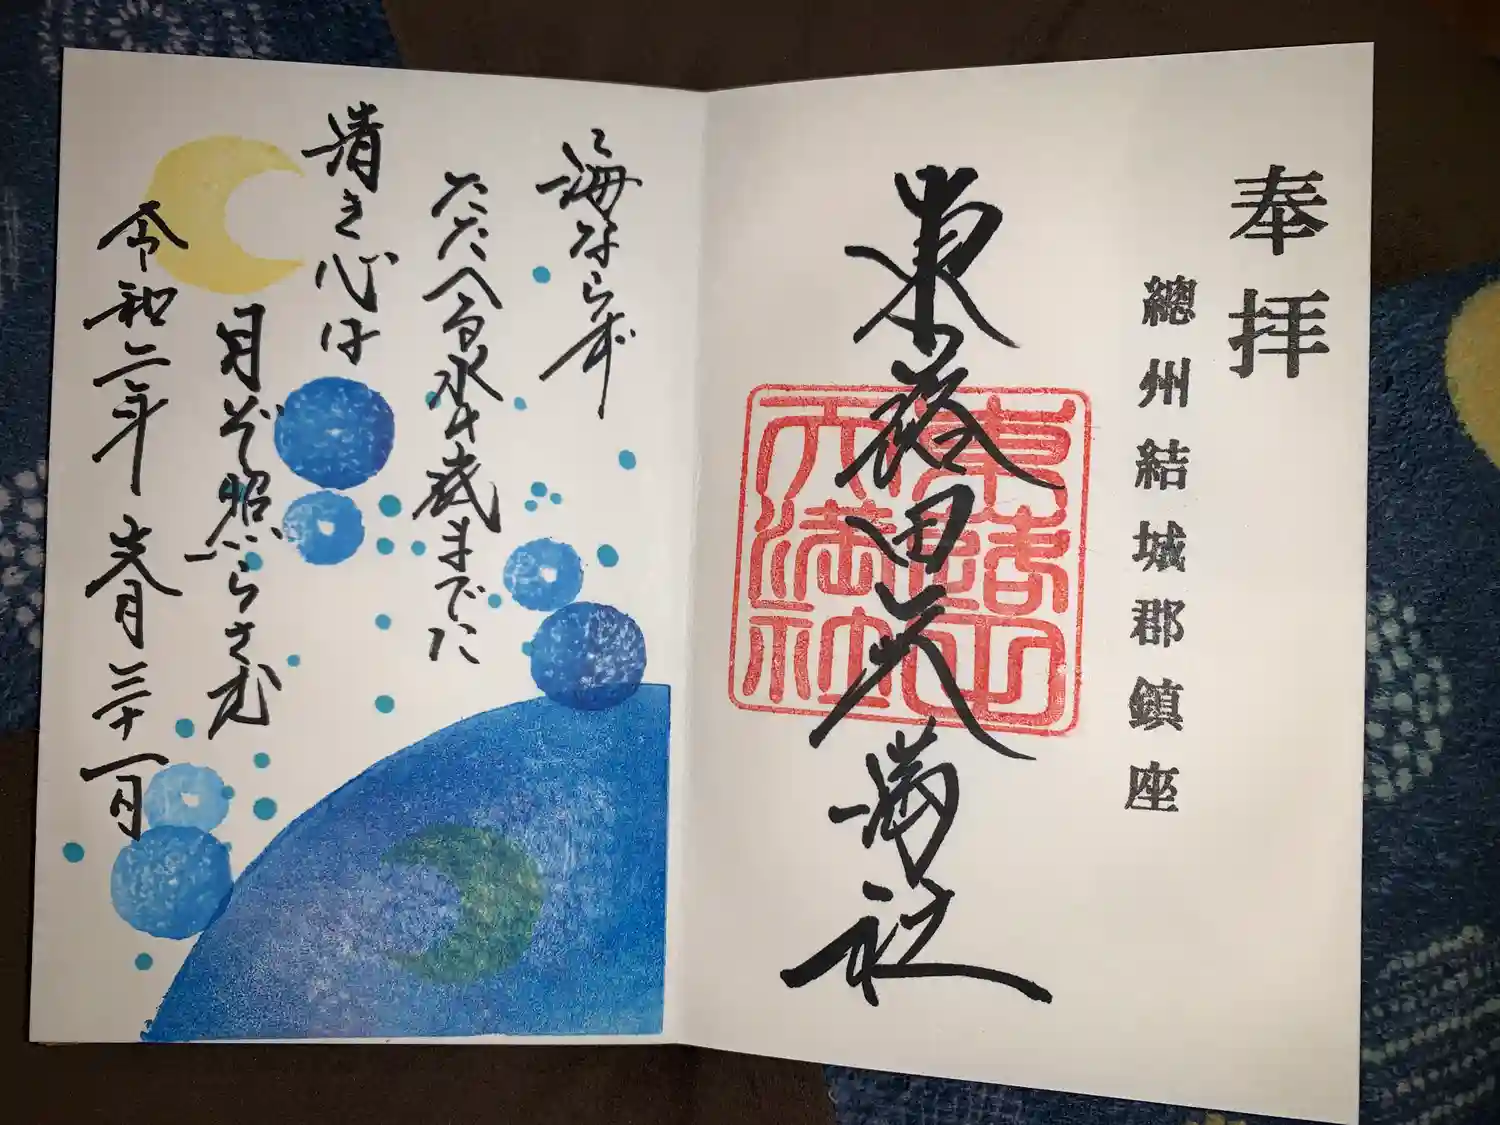 奉拝
總州結城郡鎮座
東蕗田天満社
東蕗田
天満社
海ならず
たたへる水の底までに
清き心は
月ぞ照らさむ
令和二年 月三十一日